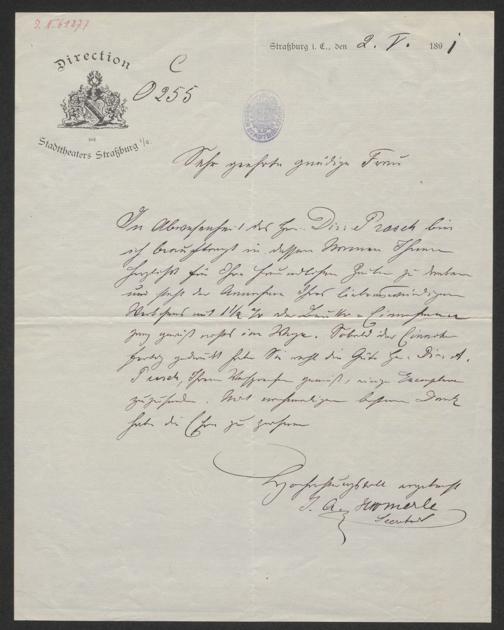 J. N. 61277
Direction
des
Stadttheaters Straßburg i/E.
C
O 255
Straßburg i. E., den 2. V. 1891
Sehr geehrte gnädige Frau
In Abwesenheit des Hr. Dir. Prasch bin
ich beauftragt in dessen Namen Ihnen
herzlichst für Ihre freundlichen Zeilen zu danken
und steht der Annahme Ihres liebenswürdigen
mit 1½ % der
im Wege. Sobald das
fertig gedruckt haben Sie wohl die Güte Hr. Dir. A.
Prasch, Ihrem Versprechen gemäß, einige Exemplare
zuzusenden. Mit nochmaligem bestem Dank
habe die Ehre zu zeichnen
Hochachtungsvoll ergebenst
J. A.
Secretär